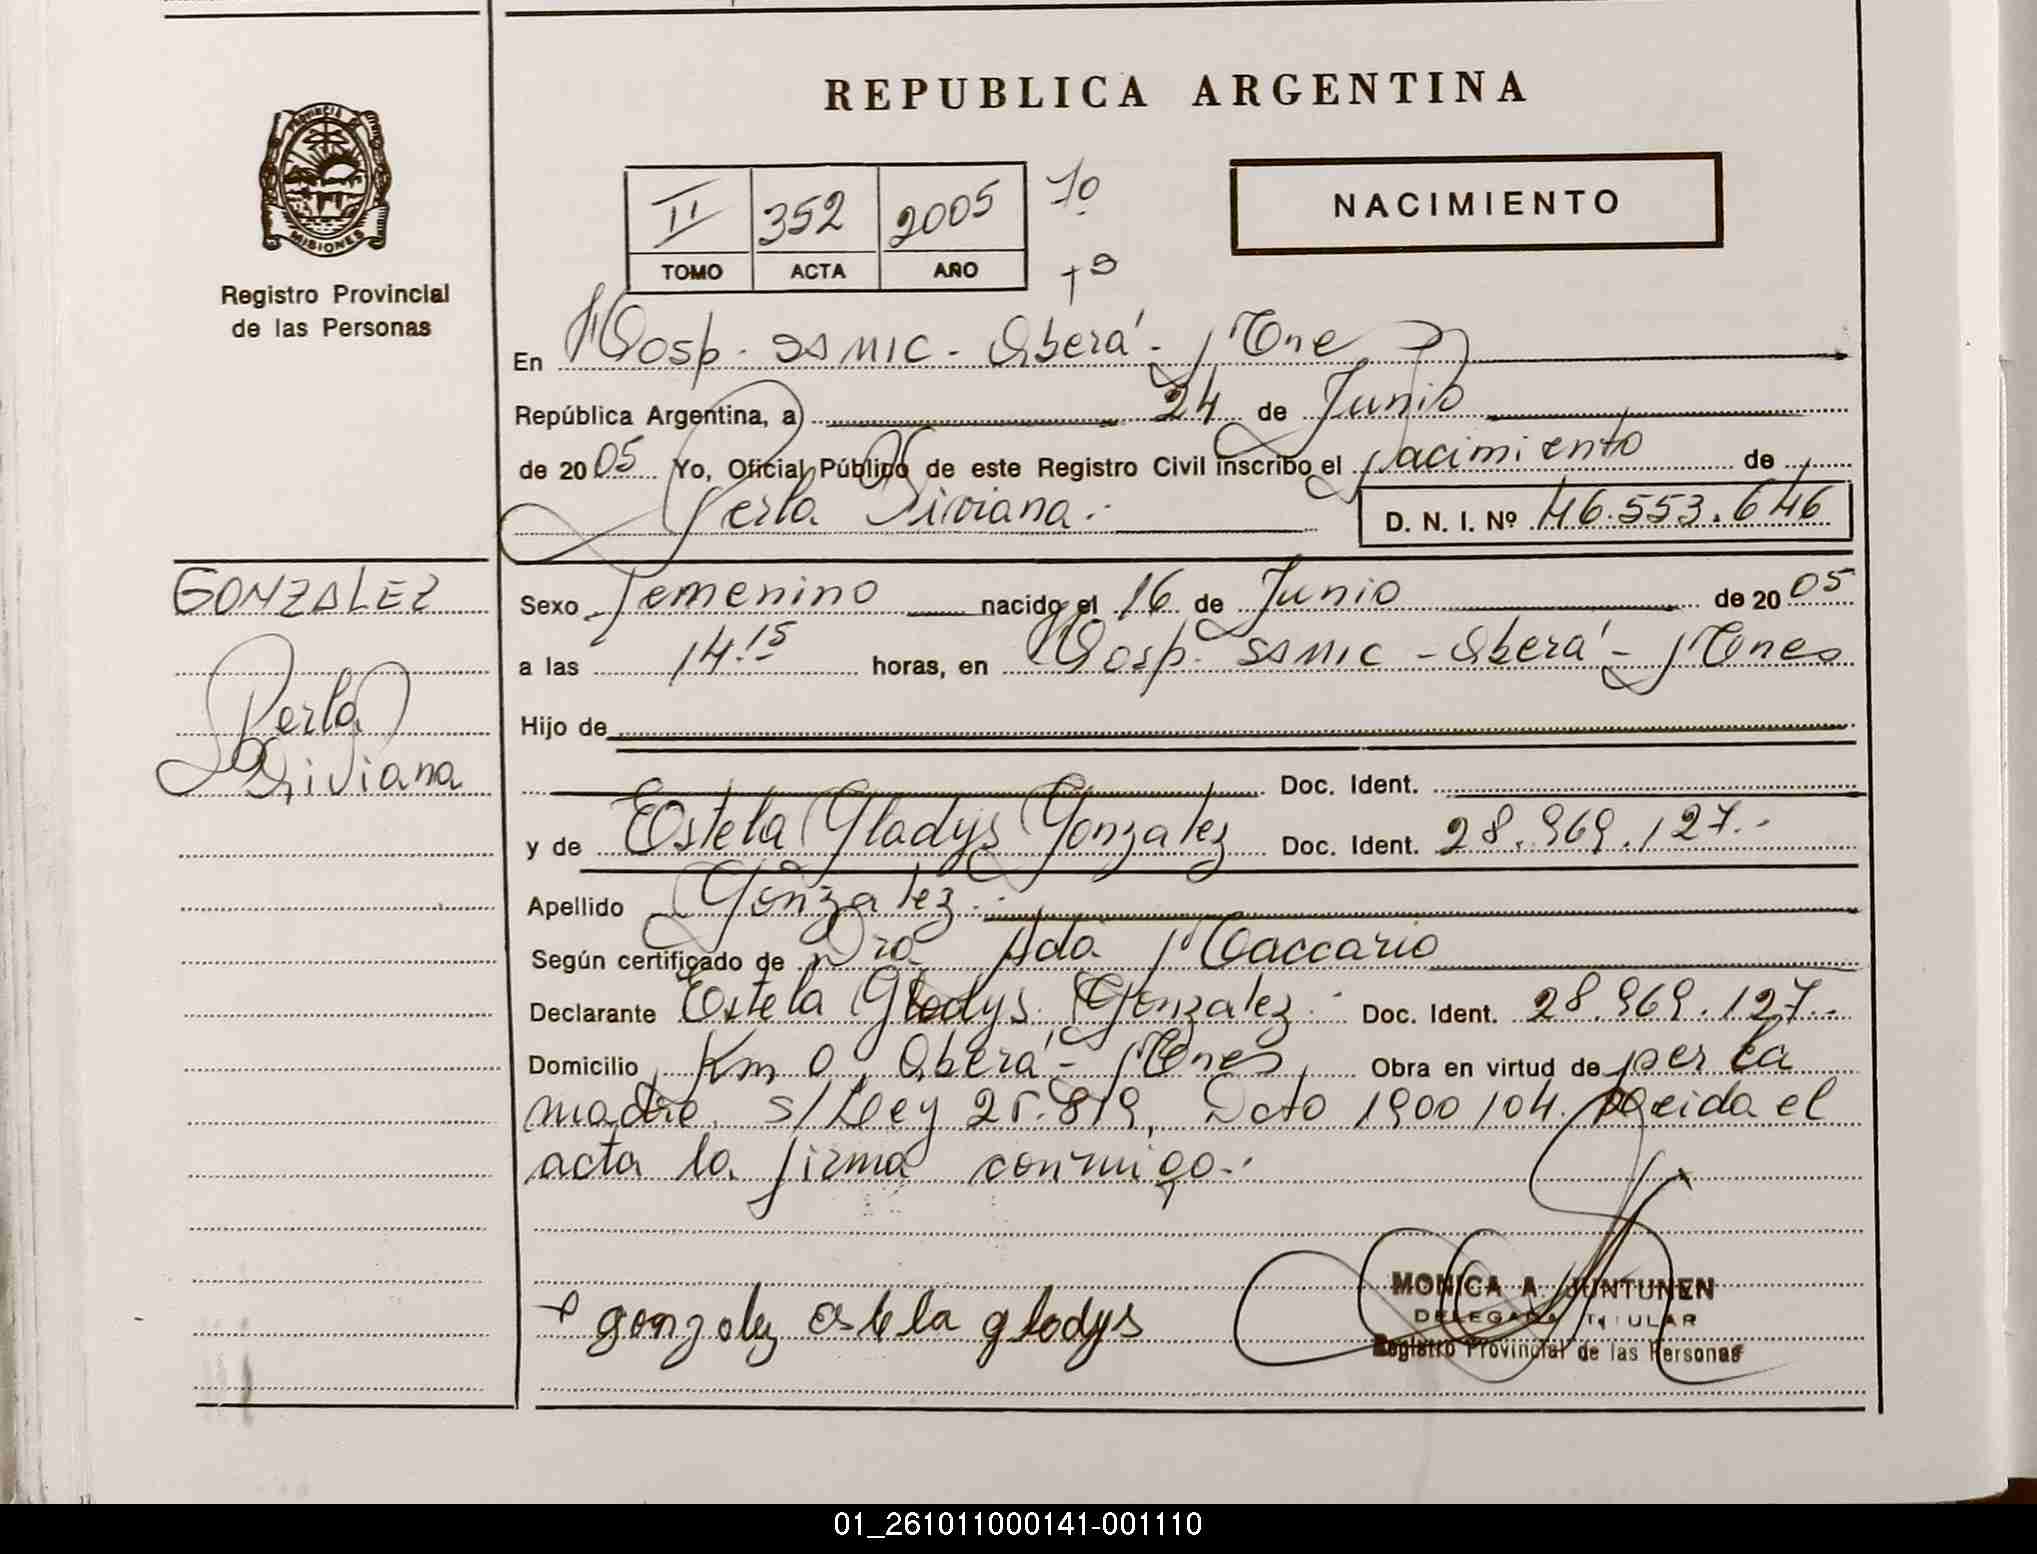 REPUBLICA ARGENTINA
PROVINCIA DE
MISIONES
Registro Provincial
de las Personas
II 352 2005
TOMO ACTA AÑO
NACIMIENTO
En Hosp. SAMIC - Oberá - Mnes
República Argentina, a 24 de Junio
de 2005 Yo, Oficial Público de este Registro Civil inscribo el Nacimiento de
Perla Viviana.- D. N. I. Nº 46.553.646
GONZALEZ
Perla
Viviana
Sexo Femenino nacido el 16 de Junio de 2005
a las 14.15 horas, en Hosp. SAMIC - Oberá - Mnes
Hijo de
Doc. Ident.
y de Estela Gladys Gonzalez Doc. Ident. 28.969.127.-
Apellido Gonzalez.-
Según certificado de Dra Ada Maccario
Declarante Estela Gladys Gonzalez.- Doc. Ident. 28.969.127.-
Domicilio Km 0, Oberá - Mnes Obra en virtud de ser la
madre, s/Ley 25.819, Dcto 1900/04. Leida el
acta la firma conmigo.-
gonzalez estela gladys
MONICA A. JUNTUNEN
DELEGADA TITULAR
Registro Provincial de las Personas
01_261011000141-001110